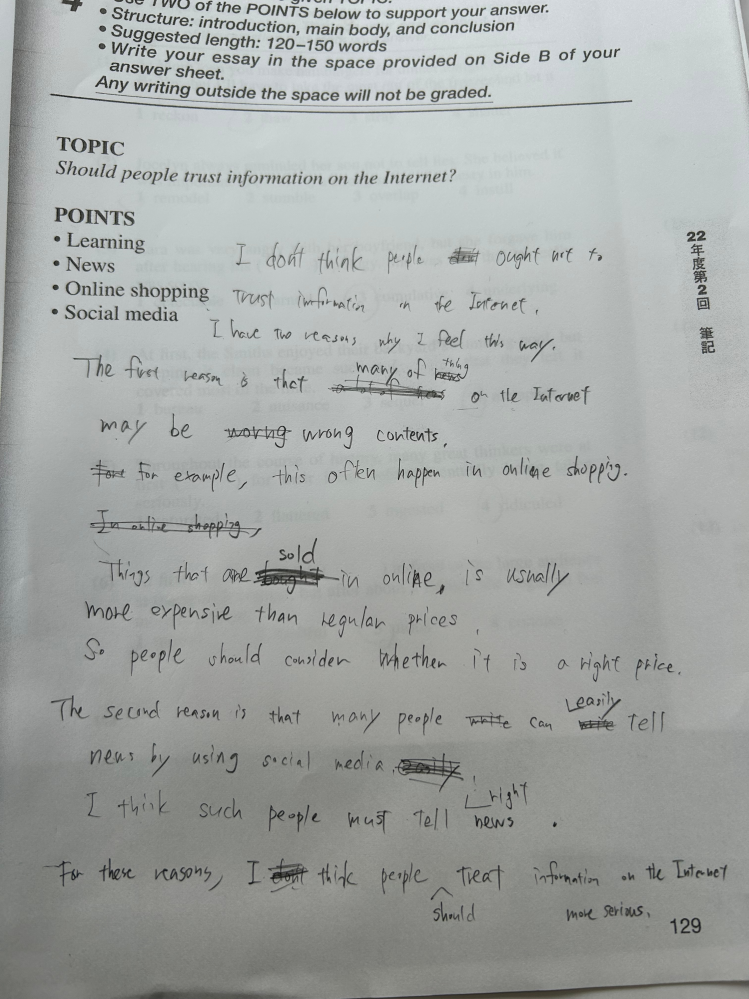 4 • Use TWO of the POINTS below to support your answer.
• Structure: introduction, main body, and conclusion
• Suggested length: 120–150 words
• Write your essay in the space provided on Side B of your
answer sheet.
Any writing outside the space will not be graded.
TOPIC
Should people trust information on the Internet?
POINTS
• Learning
• News
• Online shopping
• Social media
I don't think people ought not to
trust information on the Internet.
I have two reasons why I feel this way.
The first reason is that many of thing on the Internet
may be wrong contents.
For example, this often happen in online shopping.
Things that are sold in online, is usually
more expensive than regular prices.
So people should consider whether it is a right price.
The second reason is that many people can easily tell
news by using social media.
I think such people must tell right news.
For these reasons, I think people should treat information on the Internet
more serious.
22年度第2回 筆記
129